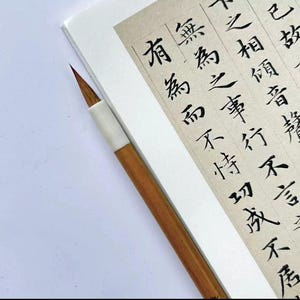 已故
下之相傾音聲
無為之事行不言
有為而不恃功成不居